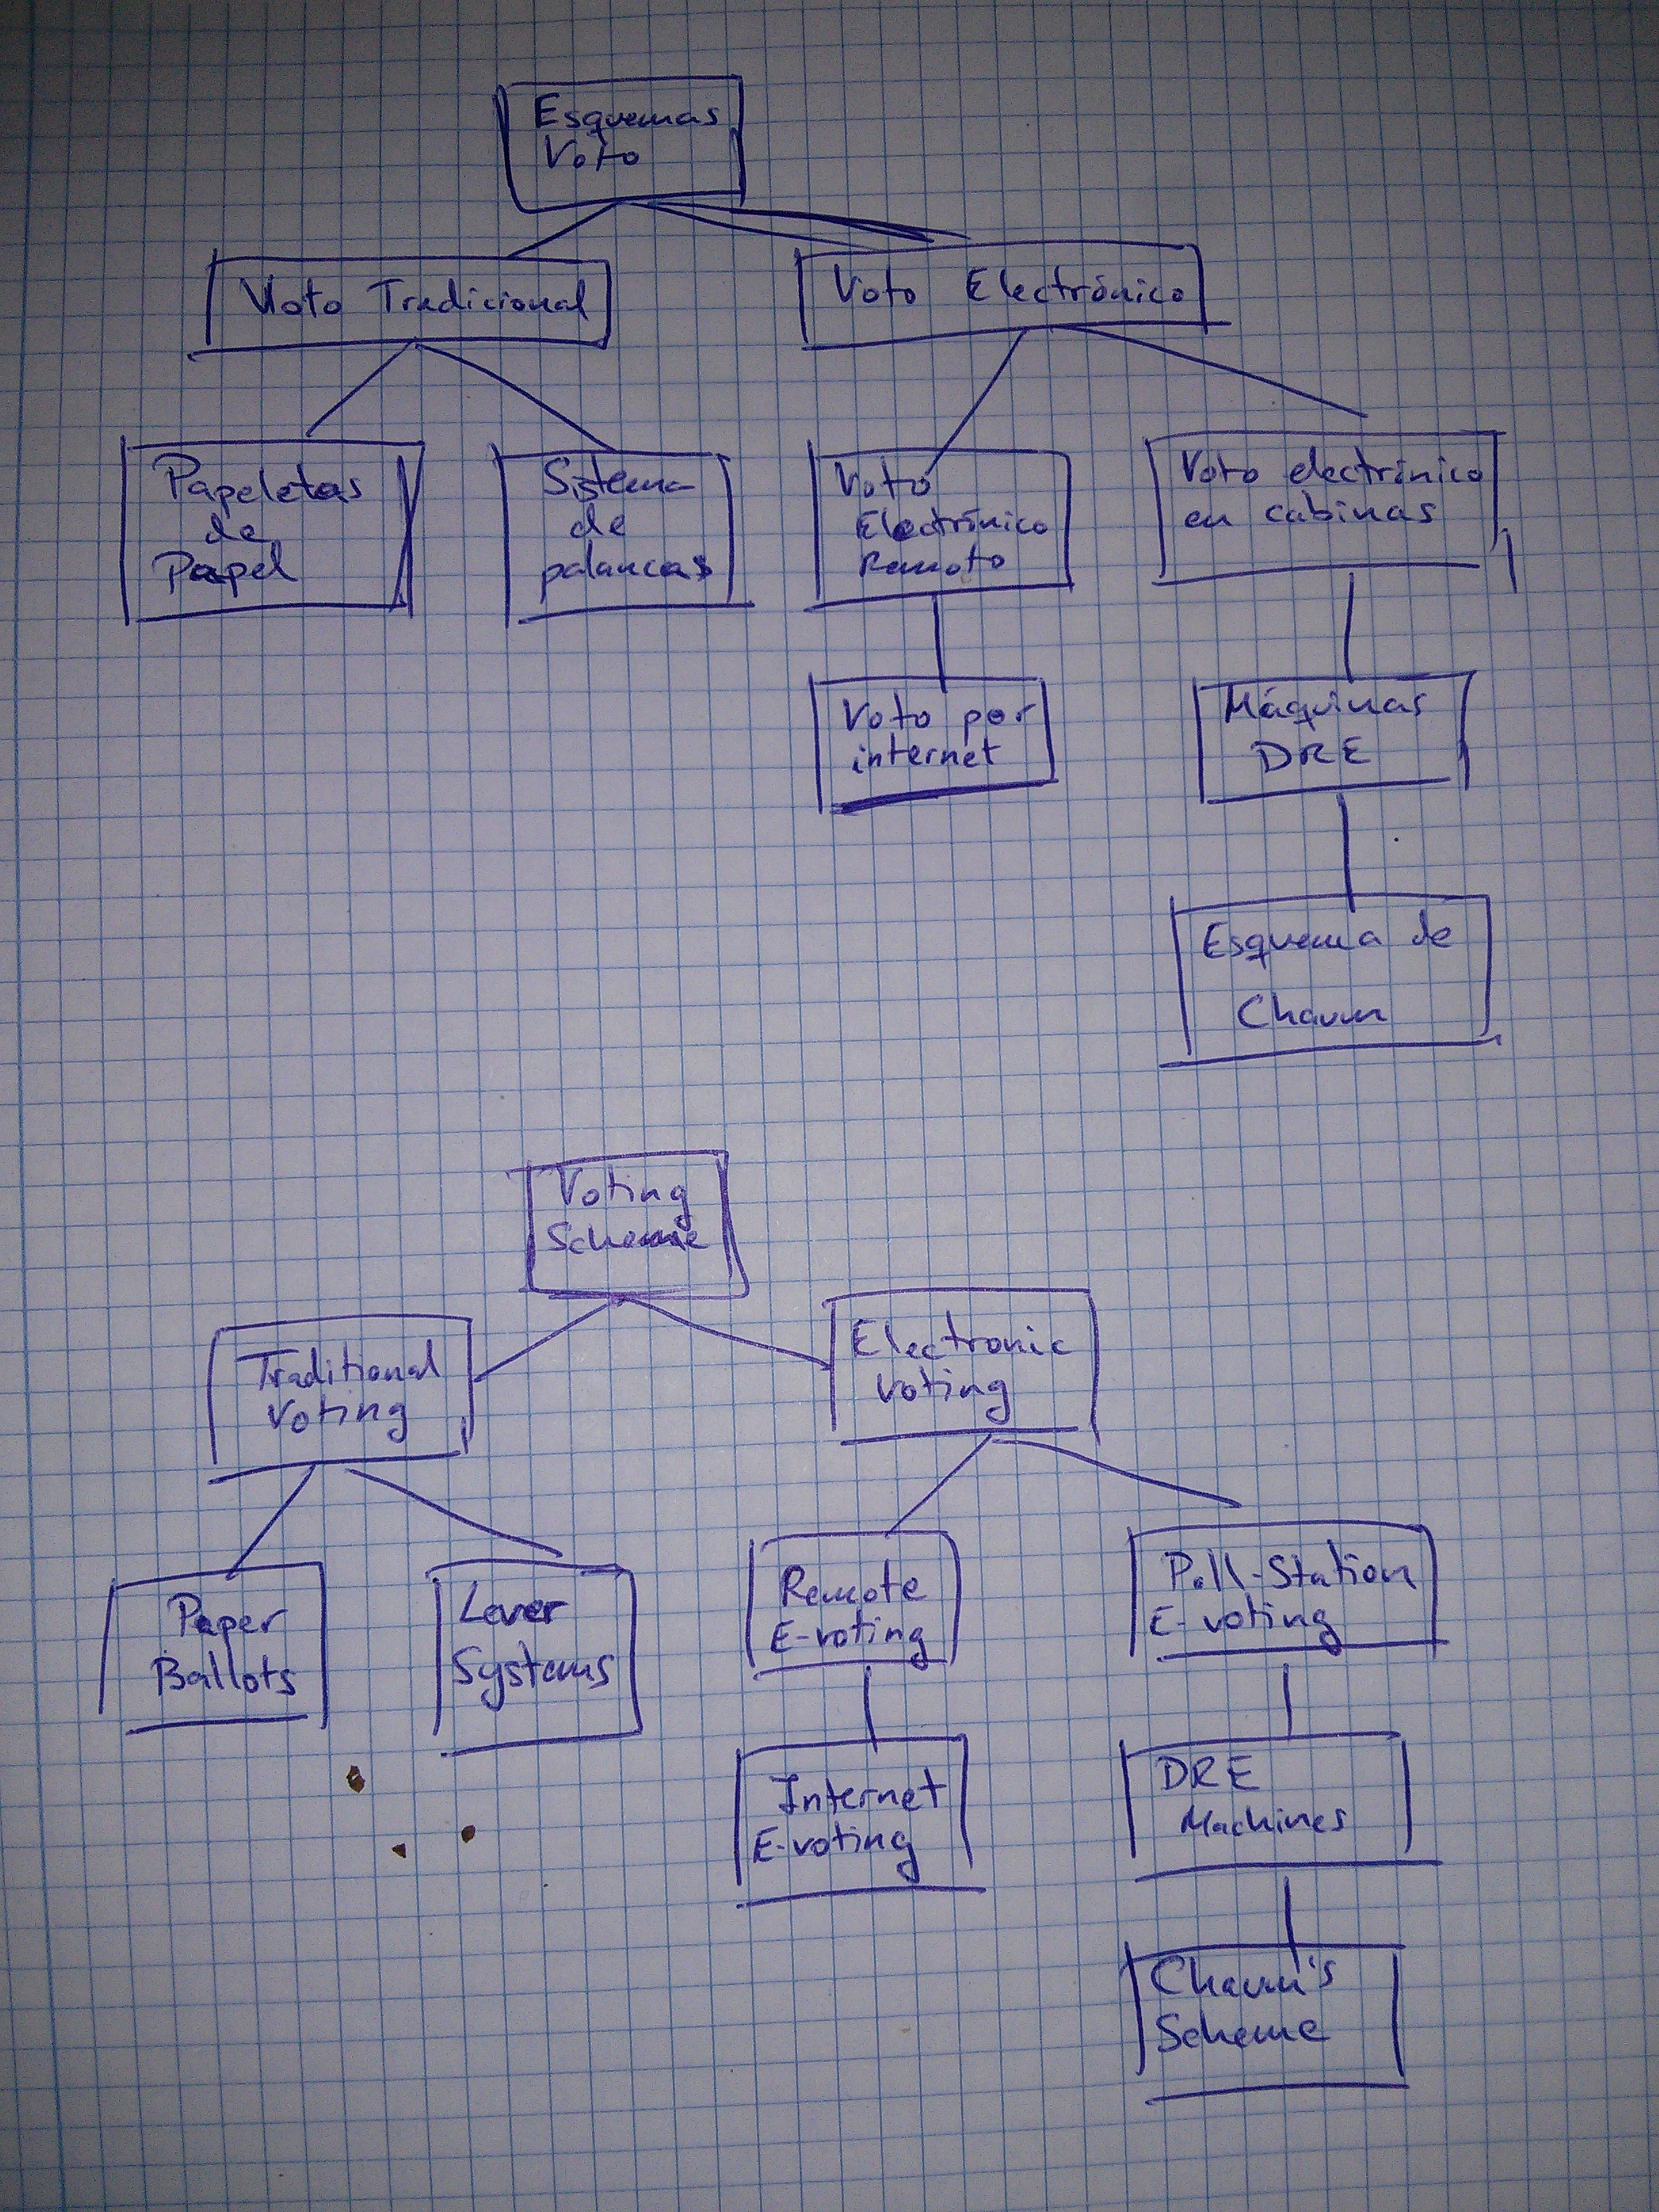 Esquemas
Voto
Voto Tradicional
Voto Electrónico
Papeletas
de
Papel
Sistema
de
palancas
Voto
Electrónico
Remoto
Voto electrónico
en cabinas
Voto por
internet
Máquinas
DRE
Esquema de
Chaum
Voting
Scheme
Traditional
Voting
Electronic
voting
Paper
Ballots
Lever
Systems
Remote
E-voting
Poll-Station
E-voting
Internet
E-voting
DRE
Machines
Chaum's
Scheme